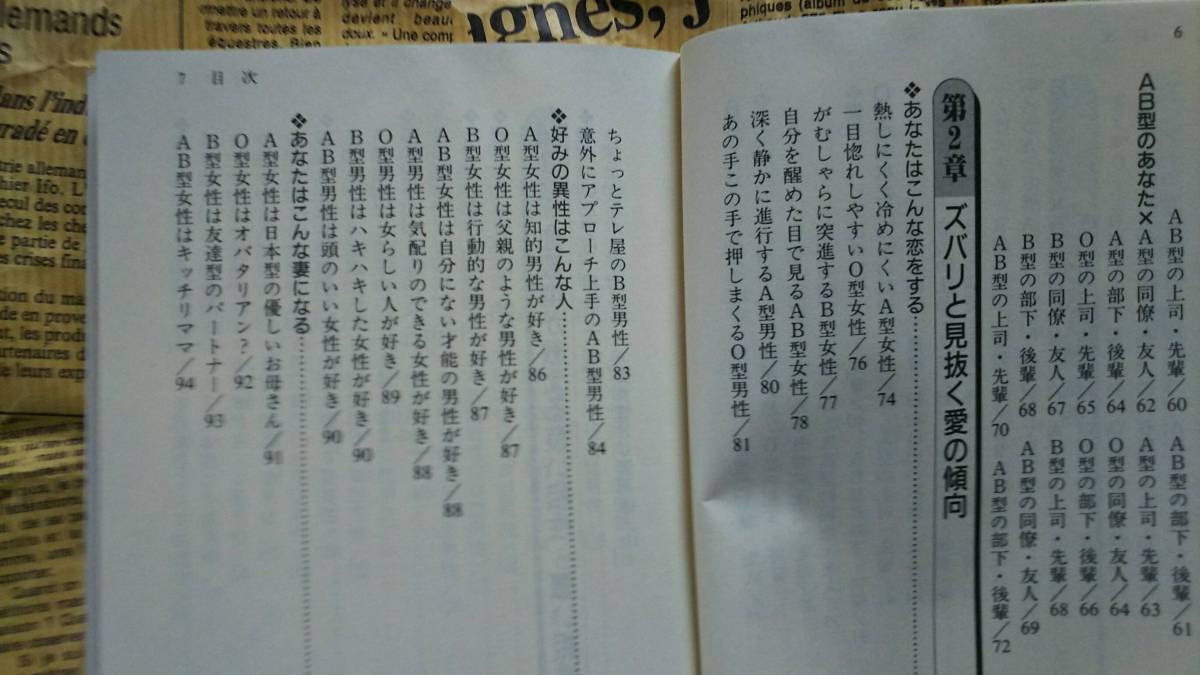 6
AB型の上司・先輩/60　AB型の部下・後輩/61
AB型のあなた×A型の同僚・友人/62　A型の上司・先輩/63
A型の部下・後輩/64　O型の同僚・友人/64
O型の上司・先輩/65　O型の部下・後輩/66
B型の同僚・友人/67　B型の上司・先輩/68
B型の部下・後輩/68　AB型の同僚・友人/69
AB型の上司・先輩/70　AB型の部下・後輩/72
第2章　ズバリと見抜く愛の傾向
❖あなたはこんな恋をする……
熱しにくく冷めにくいA型女性/74
一目惚れしやすいO型女性/76
がむしゃらに突進するB型女性/77
自分を醒めた目で見るAB型女性/78
深く静かに進行するA型男性/80
あの手この手で押しまくるO型男性/81
7　目次
ちょっとテレ屋のB型男性/83
意外にアプローチ上手のAB型男性/84
❖好みの異性はこんな人……
A型女性は知的男性が好き/86
O型女性は父親のような男性が好き/87
B型女性は行動的な男性が好き/87
AB型女性は自分にない才能の男性が好き/88
A型男性は気配りのできる女性が好き/88
O型男性は女らしい人が好き/89
B型男性はハキハキした女性が好き/90
AB型男性は頭のいい女性が好き/90
❖あなたはこんな妻になる……
A型女性は日本型の優しいお母さん/91
O型女性はオバタリアン?/92
B型女性は友達型のパートナー/93
AB型女性はキッチリママ/94
lemands
agnes, J